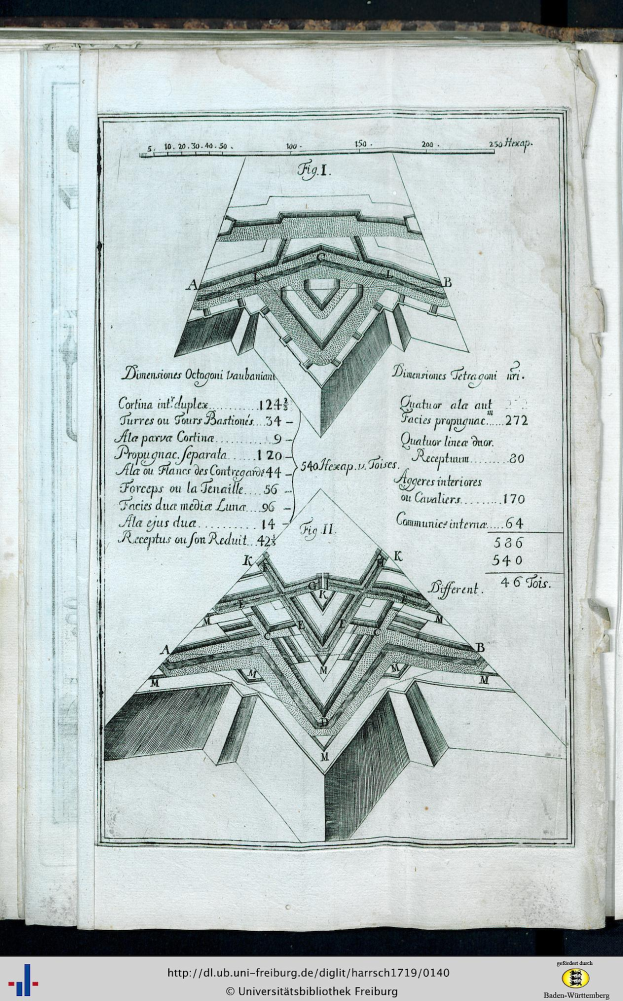 5. 10. 20. 30. 40. 50. 100. 150. 200. 250 Hexap.
Fig. I.
C
L L
A B
Dimensiones Octogoni Vaubaniani
Cortina int.r duplex..........124 2/3
Turres ou Tours Bastionés...34
Ala parva Cortina.........9
Propugnac. separata......120
Ala ou Flancs des Contregardes 44
Forceps ou la Tenaille....56
Facies dua media Lunæ...96
Ala ejus dua..........14
Receptus ou son Reduit..42 1/3
540 Hexap. v. Toises.
Dimensiones Tetragoni nri.
Quatuor ala aut
Facies propugnac.....272
Quatuor linea dnor.
Receptuum.........80
Aggeres interiores
ou Cavaliers.........170
Communic. interna.....64
586
540
Different. 46 Tois.
Fig. II.
K K
H H
G
K
F L
M M
E E
C C
A B
M
M M
M M
D
M
http://dl.ub.uni-freiburg.de/diglit/harrsch1719/0140
© Universitätsbibliothek Freiburg
gefördert durch
Baden-Württemberg